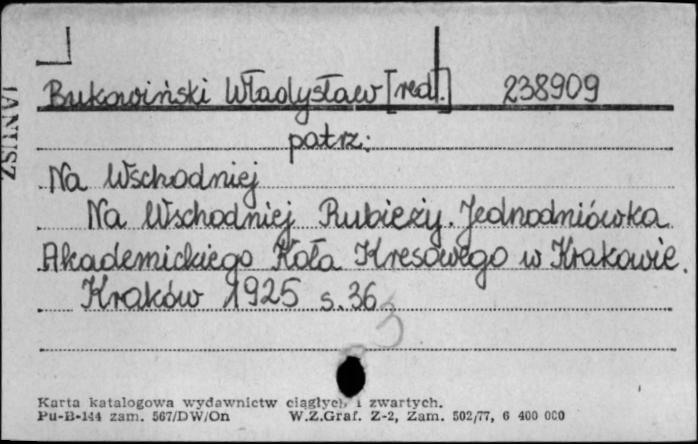 Bukowiński Władysław [red.] 238909
patrz:
Na Wschodniej
Na Wschodniej Rubieży. Jednodniówka
Akademickiego Koła Kresowego w Krakowie.
Kraków 1925 s. 36
3
JANUSZ
Karta katalogowa wydawnictw ciągłych i zwartych.
Pu-B-144 zam. 567/DW/On W.Z.Graf. Z-2, Zam. 502/77, 6 400 000